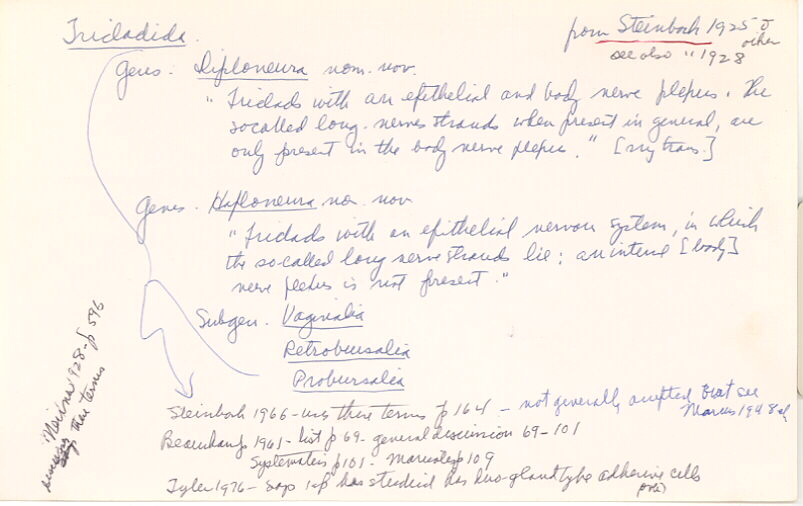 Tricladida.
from Steinbock 1925 & other
see also " 1928
Genus: Diploneura nom. nov.
"Triclads with an epithelial and body nerve plexus. The
socalled long. nerve strands when present in general, are
only present in the body nerve plexus." [my trans.]
Genus. Haploneura no. nov
"Triclads with an epithelial nervous system, in which
the socalled long nerve strands lie; an interne [body]
nerve plexus is not present."
Subgen. Vaginalia
Retrobursalia
Probursalia
Steinbock 1966 - uses these terms p 164 - not generally accepted but see
Marcus 1948
Beauchamp 1961 - list p 69 - general discussion 69-101
Systematics p 101 - Maricola p 109
Tyler 1976 - says 1 sp has studied has duo-gland type adhesive cells
Meixner 1928 - p 596
discusses these terms